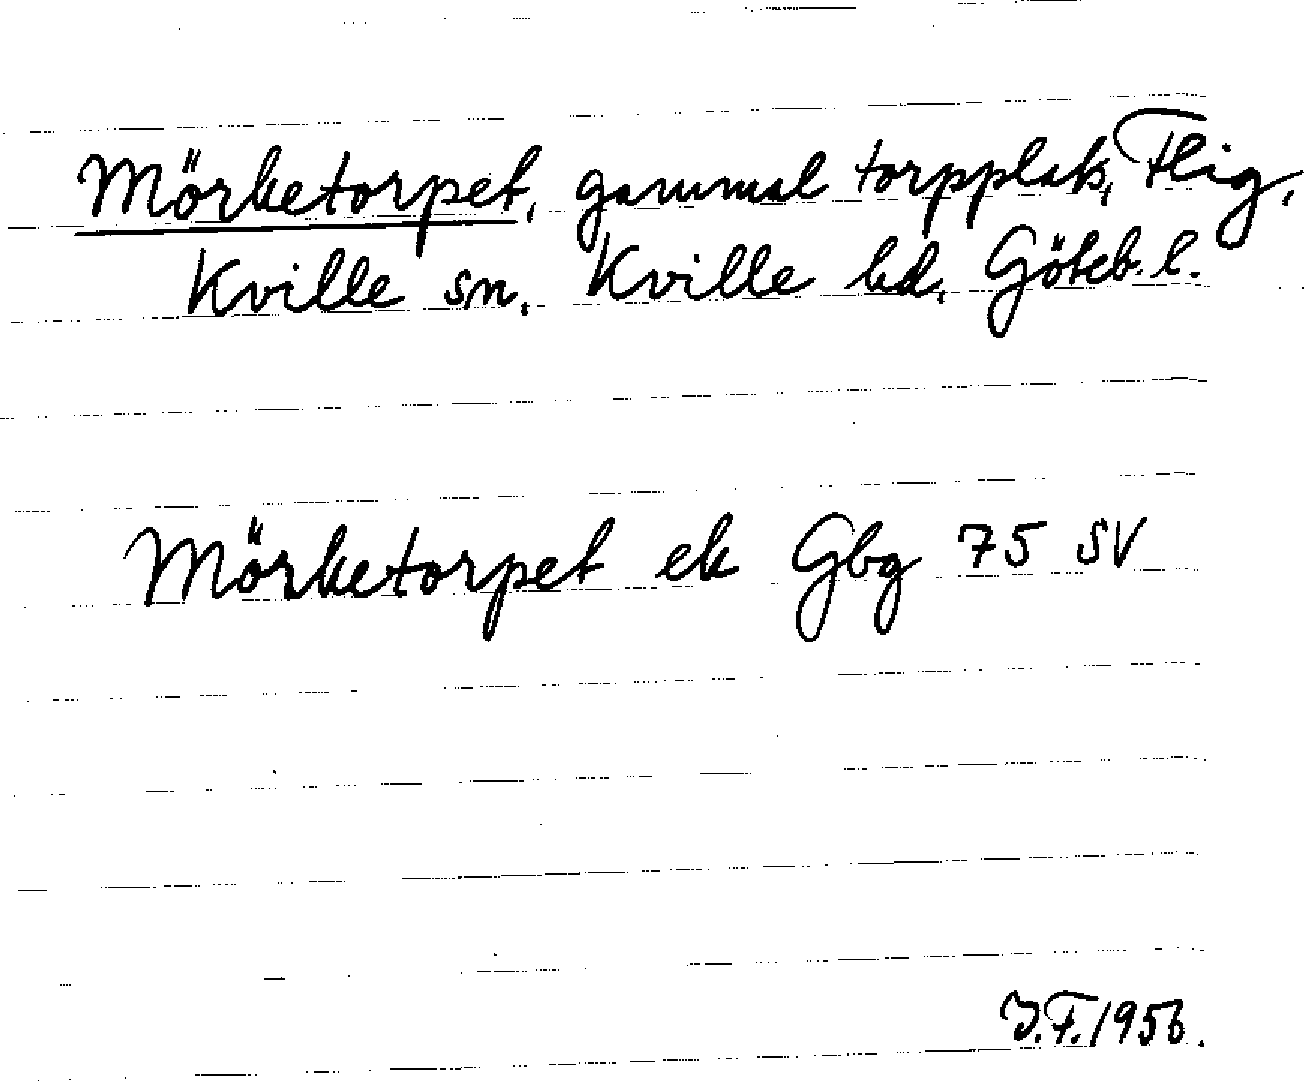 Mörketorpet, gammal torpplats, Flig,
Kville sn. Kville hd. Göteb. l.
Mörketorpet ek Gbg 75 SV
J.F. 1956.